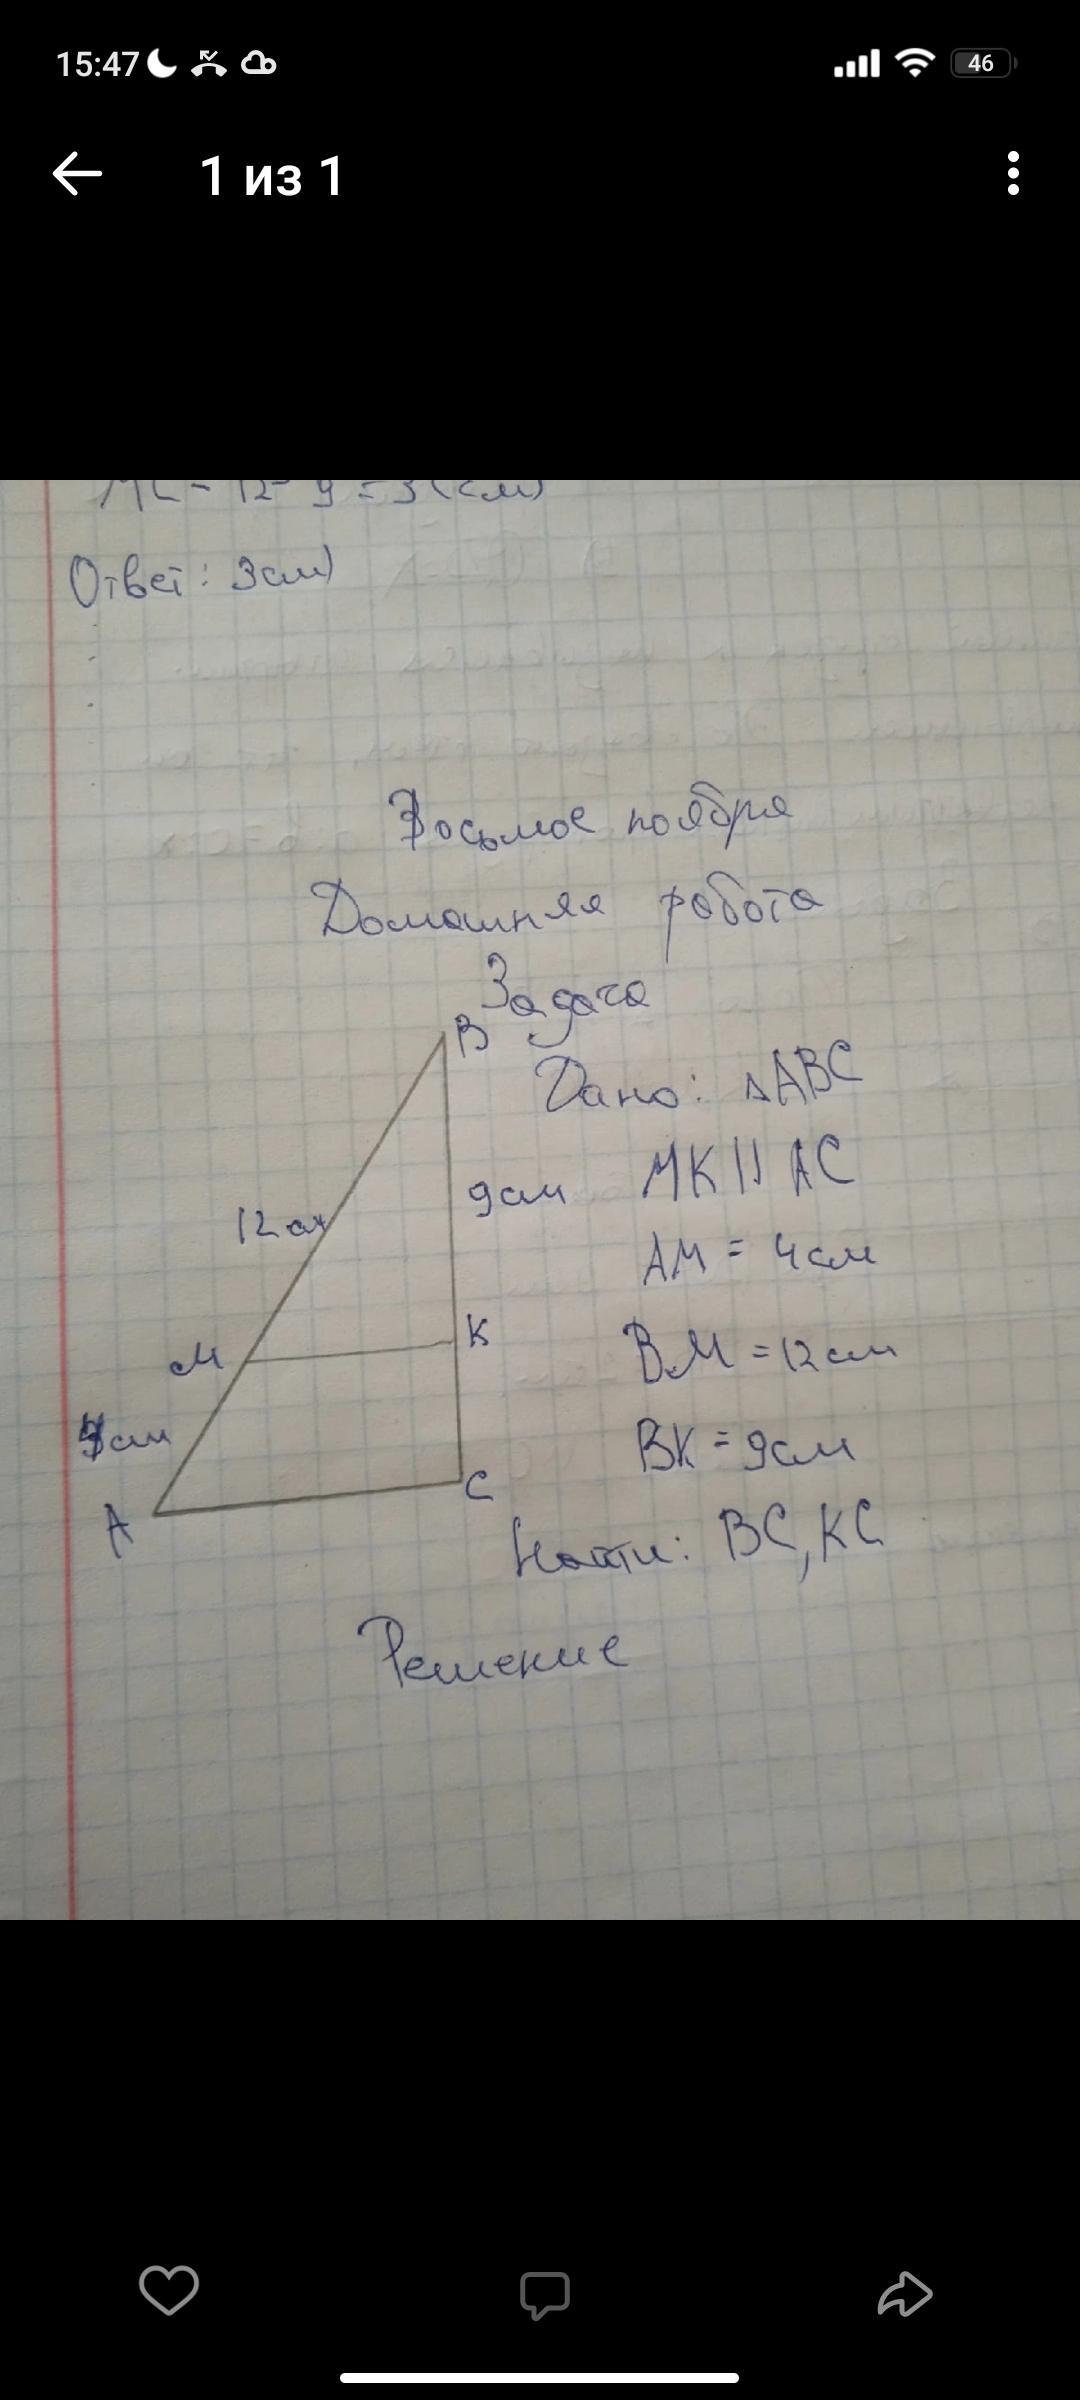 15:47
46
1 из 1
МС - 12 - 9 = 3 (см)
Ответ: 3см)
Восьмое ноября
Домашняя робота
Задача
B
Дано: △ABC
9см
MK || AC
12см
AM = 4см
K
BM = 12см
M
4см
BK = 9см
C
A
Найти: BC, KC
Решение